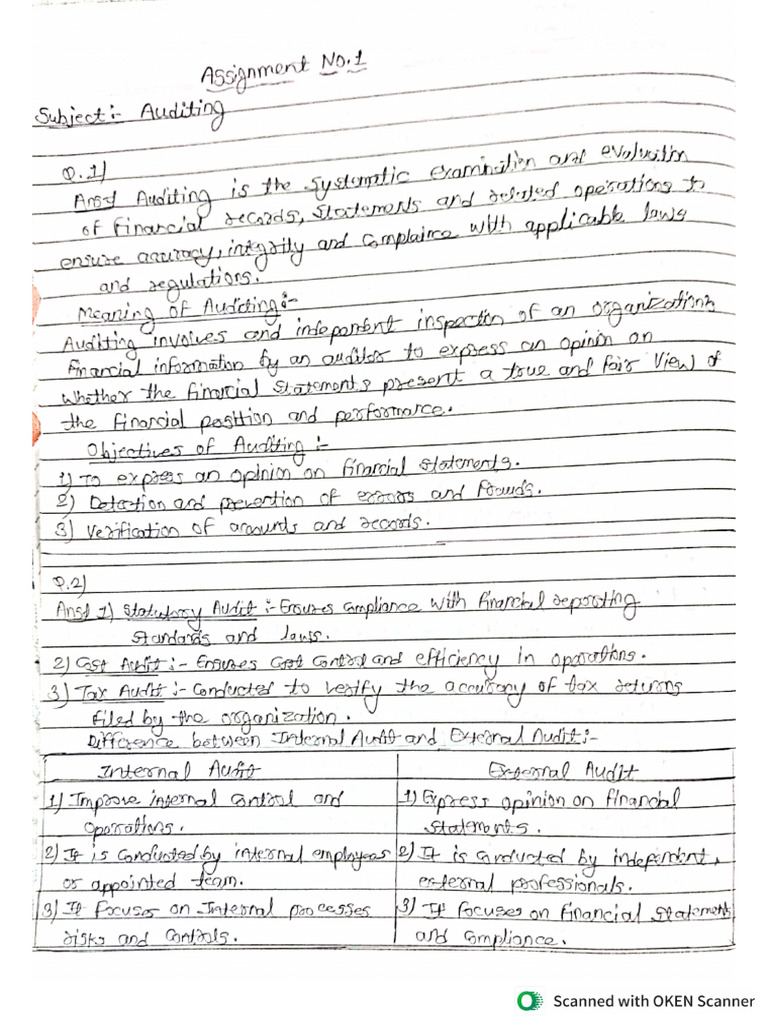 Assignment No.1
Subject:- Auditing
Q.1)
Ans⇒ Auditing is the systematic examination and evaluation
of financial records, statements and related operations to
ensure accuracy, integrity and complaince with applicable laws
and regulations.
Meaning of Auditing:-
Auditing involves and indepentent inspection of an organizations
financial information by an auditor to express an opinion on
whether the financial statements present a true and fair view of
the financial position and performance.
Objectives of Auditing :-
1) To express an opinion on financial statements.
2) Detection and prevention of errors and frauds.
3) Verification of accounts and records.
Q.2)
Ans⇒ 1) Statutory Audit :- Ensures compliance with financial reporting
standards and laws.
2) Cost Audit :- Ensures cost control and efficiency in operations.
3) Tax Audit :- Conducted to verify the accuracy of tax returns
filed by the organization.
Difference between Internal Audit and External Audit :-
Internal Audit External Audit
1) Improve internal control and 1) Express opinion on financial
operations. statements.
2) It is conducted by internal employees 2) It is conducted by independent,
or appointed team. external professionals.
3) It focuses on Internal processes 3) It focuses on financial statements
risks and controls. and compliance.
Scanned with OKEN Scanner